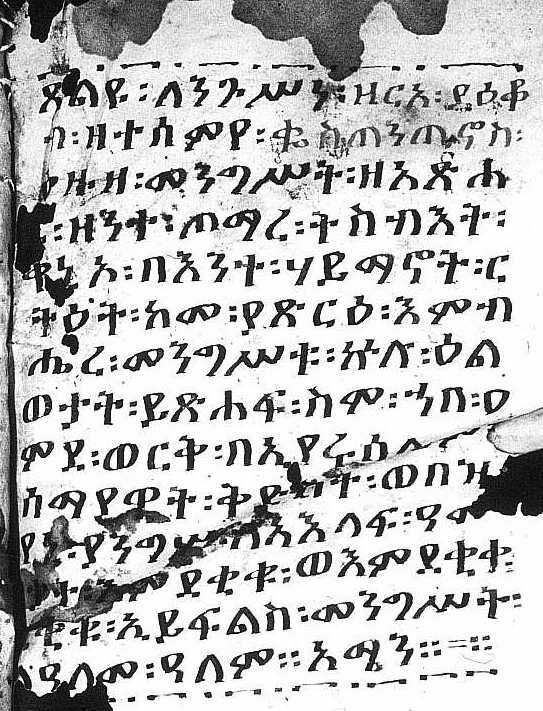 ጸልዩ፡ለንጉሥን፡ዘርአ፡ያዕቆ
ብ፡ዘተሰምየ፡ቈስጠንጢኖስ፡
መንግሥት፡ዘአጽሐ
ዘንተ፡ጦማረ፡ትስብእት፡
ቀንአ፡በእንተ፡ሃይማኖት፡ር
ትዕት፡ከመ፡ያጽርዕ፡እምብ
ሔረ፡መንግሥቱ፡ኵሉ፡ዕል
ወታት፡ይጽሐፍ፡ስም፡ኀበ፡ዐ
ምደ፡ወርቅ፡በኢየሩሳሌም
ሰማያዊት፡ቅድስት፡ወበዝ
ያንግሥ፡ለአእላፍ፡ዓመ
ታት፡እምደቂቁ፡ወእምደቂቀ፡
ደቂቁ፡ኢይፍልስ፡መንግሥት፡
ለዓለመ፡ዓለም።አሜን።